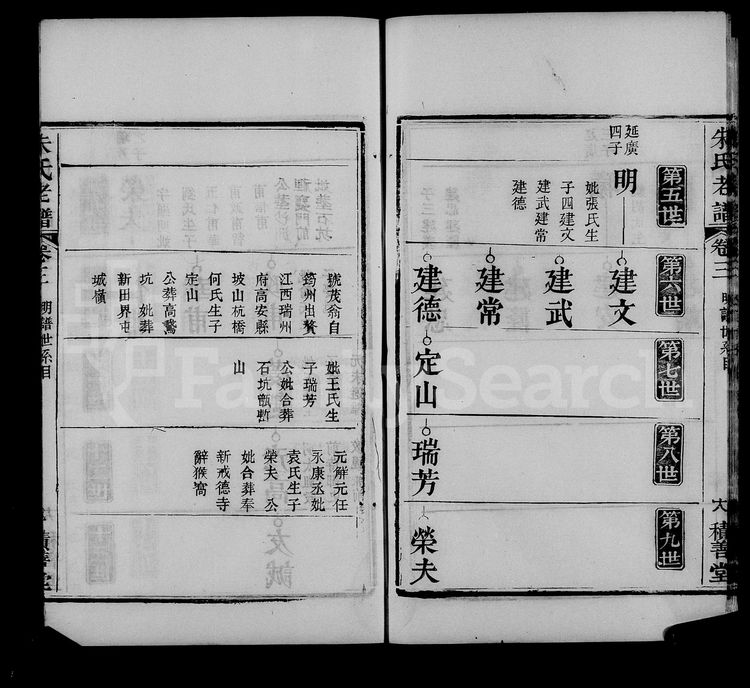 朱氏老譜
卷三
明譜世系目
積善堂
第五世
第六世
第七世
第八世
第九世
延廣
四子
明
妣張氏生
子四建文
建武建常
建德
建文
建武
建常
建德
定山
瑞芳
榮夫
號茂翁自
筠州出贅
江西瑞州
府高安縣
坡山杭橋
何氏生子
定山
公葬高鷔
坑 妣葬
新田界屯
城嶺
妣王氏生
子瑞芳
公妣合葬
石坑甑暫
山
元解元任
永康丞妣
袁氏生子
榮夫 公
妣合葬奉
新戒德寺
辭猴窩
朱氏老譜
卷三
明譜世系目
積善堂
FamilySearch